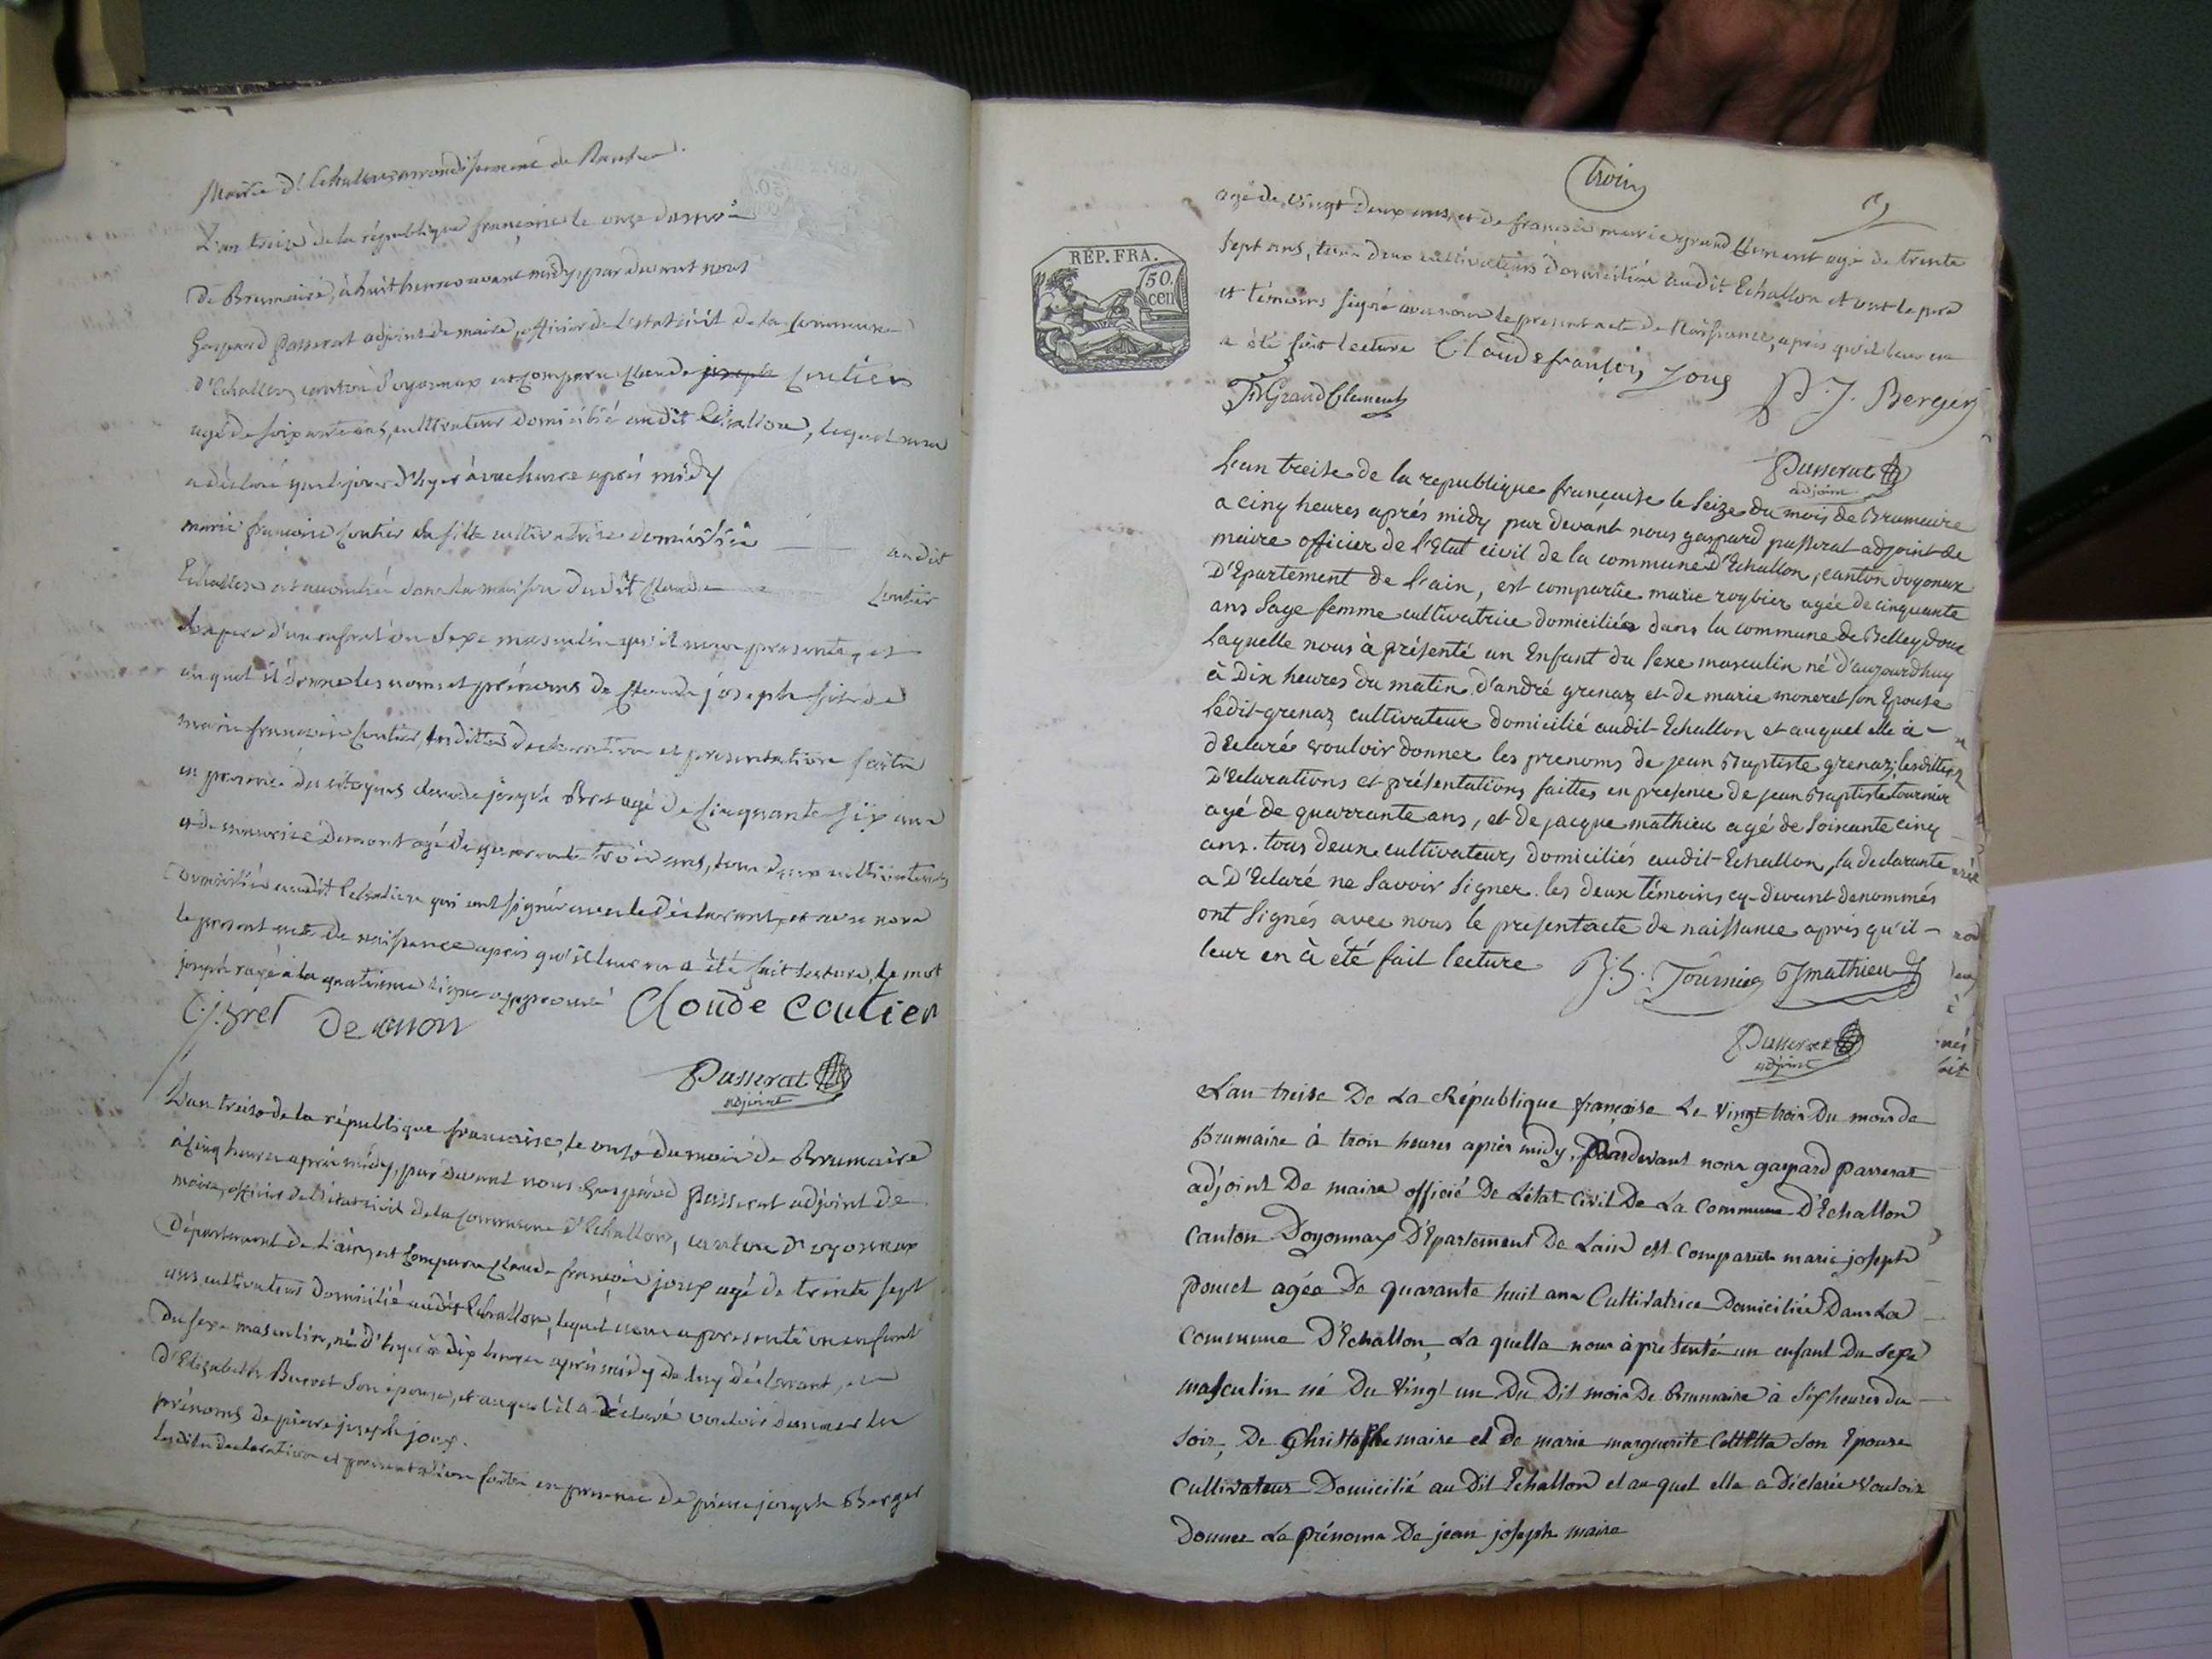 Mairie d'Echallon arrondissement de Nantua
L'an treize de la république française le onze du mois
de Brumaire, à huit heures avant midy, par devant nous
Gaspard passerat adjoint de maire, officier de l'état civil de la commune
d'Echallon, canton d'oyonnax est comparu Claude joseph Coutier
agé de soixante ans, cultivateur domicilié audit Echallon, lequel nous
a déclaré que le jour d'hyer à onze heures après midy
marie françoise Coutier sa fille cultivatrice domiciliée audit
Echallon est accouchée dans la maison dudit Claude Coutier
son pere d'un enfant du sexe masculin qu'il nous presente, et
auquel il donne les noms et prénoms de Claude joseph fils de
marie françoise Coutier, lesdittes declaration et presentation faites
en presence des citoyens claude joseph Bret agé de cinquante six ans
et de maurice Demont agé de quarante trois ans, tous deux cultivateurs
domiciliés audit Echallon qui ont signés avec le déclarant et nous
le present acte de naissance après qu'il leur en a été fait lecture, le mot
joseph rayé à la quatrieme ligne approuvé
C. j. Bret Claude Coutier
Passerat
adjoint
L'an treize de la république française, le onze du mois de Brumaire
à cinq heures après midy, par devant nous Gaspard passerat adjoint de
maire, officier de l'état civil de la commune d'Echallon, canton d'oyonnax
Département de l'ain, est comparu Claude françois joux agé de trente sept
ans cultivateur domicilié audit Echallon, lequel nous a presenté un enfant
du sexe masculin, né d'hyer à dix heures après midy de luy déclarant, et
d'Elizabeth Buevet son épouse, et auquel il a déclaré vouloir donner les
prénoms de pierre joseph joux.
lesdites declaration et presentation faites en presence de pierre joseph Berger
trois
RÉP. FRA.
50. cen
agé de vingt deux ans, et de françois marie grand Clement agé de trente
sept ans, tous deux cultivateurs domiciliés audit Echallon et ont le pere
et témoins signé avec nous le present acte de Naissance, après qu'il leur en
a été fait lecture Claude françois Joux P. J. Berger
GrandClement
Passerat
adjoint
L'an treize de la republique françaite le Seize du mois de Brumaire
a cinq heures aprés midy par devant nous gaspard passerat adjoint de
maire officier de l'Etat civil de la commune d'Echallon, canton doyonax
D'Epartement de l'ain, est compartie marie roybier agée de cinquante
ans Sage femme cultivatrice domiciliés dans la commune de Belleydoux
Laquelle nous à présenté un Enfant du sexe masculin né d'aujourdhuy
à Dix heures du matin d'andré grenaz et de marie moneret son Epouse
Ledit grenaz cultivateur domicilié audit Echallon et auquel elle à
dEclaré vouloir donner les prenoms de jean Baptiste grenaz, lesdittes
D'Eclarations et présentations faittes en presence de jean Baptiste tournier
agé de quarrante ans, et de jacque mathieu agé de Soixante cinq
ans. tous deux cultivateurs domiciliés audit Echallon, la declarante
a D'Eclaré ne Savoir Signer. les deux témoins cy-devant denommés
ont Signés avec nous le present acte de naissance après qu'il
leur en à été fait lecture J. B. Tournier Jmathieu
Passerat
adjoint
L'an treise De La République françoise Le Vingt trois Du mois de
Brumaire à trois heures après midy, Pardevant nous gaspard passerat
adjoint De maire officié De L'état Civil De La Commune D'Echallon
Canton Doyonnax D'Epartement De Lain est Comparut marie joseph
poncet agée De quarante huit ans Cultivatrice Domiciliée Dans La
Commune D'Echallon, La quelle nous à présenté un enfant Du Sexe
masculin né Du Vingt un Du Dit mois De Brumaire à Six heures du
Soir, De Christophe maire et De marie marguerite Son Epouse
Cultivateur Domicilié au Dit Echallon et au quel elle a Déclarée Vouloir
Donner Le prénoms De jean joseph maire